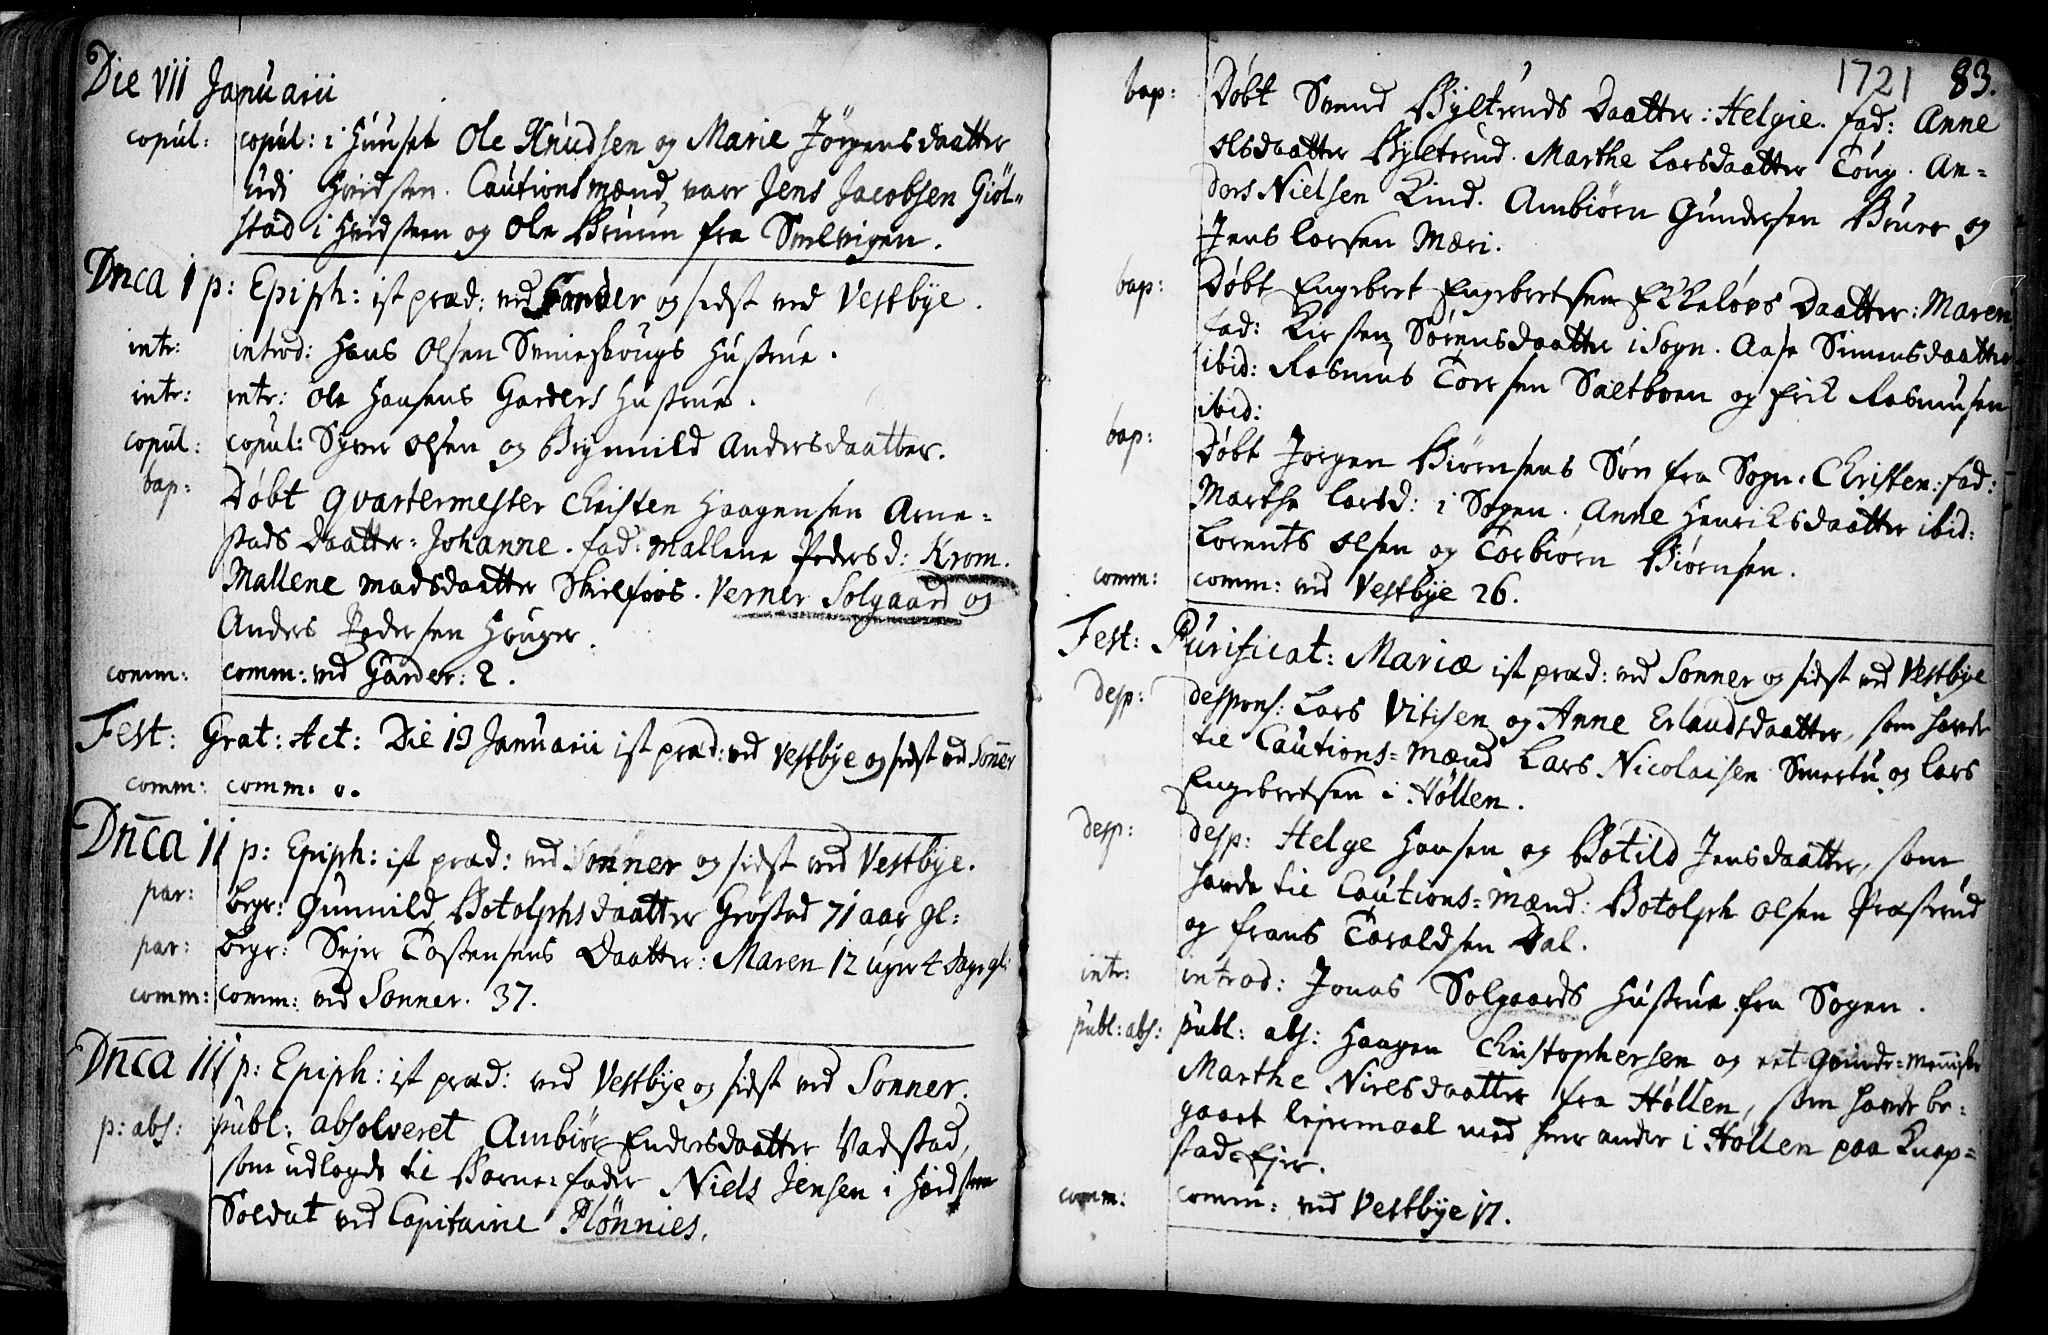 Die VII Januarii
copul: copul: i Huuset Ole Knudsen og Marie Jörgensdaatter
udi Hvidsten. Cautions mænd, var Jens Jacobsen Giöl-
stad i Hvidsteen og Ole Bruun fra Smelvigen.
Dnca I p: Epiph: ist præd: ved Garder og sidst ved Vestbÿe.
intr: introd: Hans Olsen Hustrue.
intr: intr: Ole Hansens Garders Hustrue.
copul: copul: Syver Olsen og Brynnild Andersdaatter.
bap: Döbt Qvartermester Christen Haagensen Arne-
stads Daatter: Johanne. fad: Mallene Pedersd: Krom.
Mallene Madsdaatter Skilfoss. Verner Solgaard og
Anders Pedersen Houger.
comm: comm: ved Garder: 2.
Fest: Grat: Act: Die 13 Januarii ist præd: ved Vestbÿe og sidst ved Sonner
comm: comm: 0.
Dnca II p: Epiph: ist præd: ved Sonner og sidst ved Vestbÿe.
par: begr: Gunnild Botolphsdaatter Grøstad 71 aar gl:
par: begr: Sejer Tostensens Daatter: Maren 12 uger 4 dage gl:
comm: comm: ved Sonner. 37.
Dnca III p: Epiph: ist præd: ved Vestbÿe og sidst ved Sonner.
p: abs: publ: absolveret Ambiör Endersdaatter Vadstad,
som udlagde til Barne-fader Niels Jensen i Hvidsteen
Soldat ved Capitaine Plönnies.
1721 83.
bap: Döbt Svend Byltruds Daatter: Helgie. fad: Anne
Olsdaatter Byltrud. Marthe Larsdaatter Toug. An-
ders Nielsen Kind. Ambiörn Gundersen Brune og
Jens Larsen Mæri.
bap: Döbt Engebret Engebretsen Ekkeløvs Daatter: Maren
fad: Kirsten Sörensdaatter i Sogn. Aase Simensdaatter
ibid: Rasmus Toresen Saltboen og Erik Rasmusen
ibid:
bap: Döbt Jorgen Biörnsens Sön fra Sogn: Christen: fad:
Marthe Larsd: i Sogen. Anne Henriksdaatter ibid:
Lorents Olsen og Torbiörn Biörnsen.
comm: comm: ved Vestbÿe 26.
Fest: Purificat: Mariæ ist præd: ved Sonner og sidst ved Vestbÿe
desp: despons: Lars Vitisen og Anne Erlandsdaatter, som havde
til Cautions-mænd Lars Nicolaisen Smertu og Lars
Engebretsen i Höllen.
desp: desp: Helge Hansen og Botild Jensdaatter, som
havde til Cautions-mænd: Botolph Olsen Præsterud
og Frans Taraldsen Dal.
intr: introd: Jonas Solgaards Hustrue fra Sogen.
publ: abs: publ: abs: Haagen Christophersen og et Qvinde-Menniske
Marthe Nielsdaatter fra Höllen, som havde be-
gaaet lejermaal med hver ander i Höllen paa Knap-
stad-Ejer.
comm: comm: ved Vestbÿe 17.